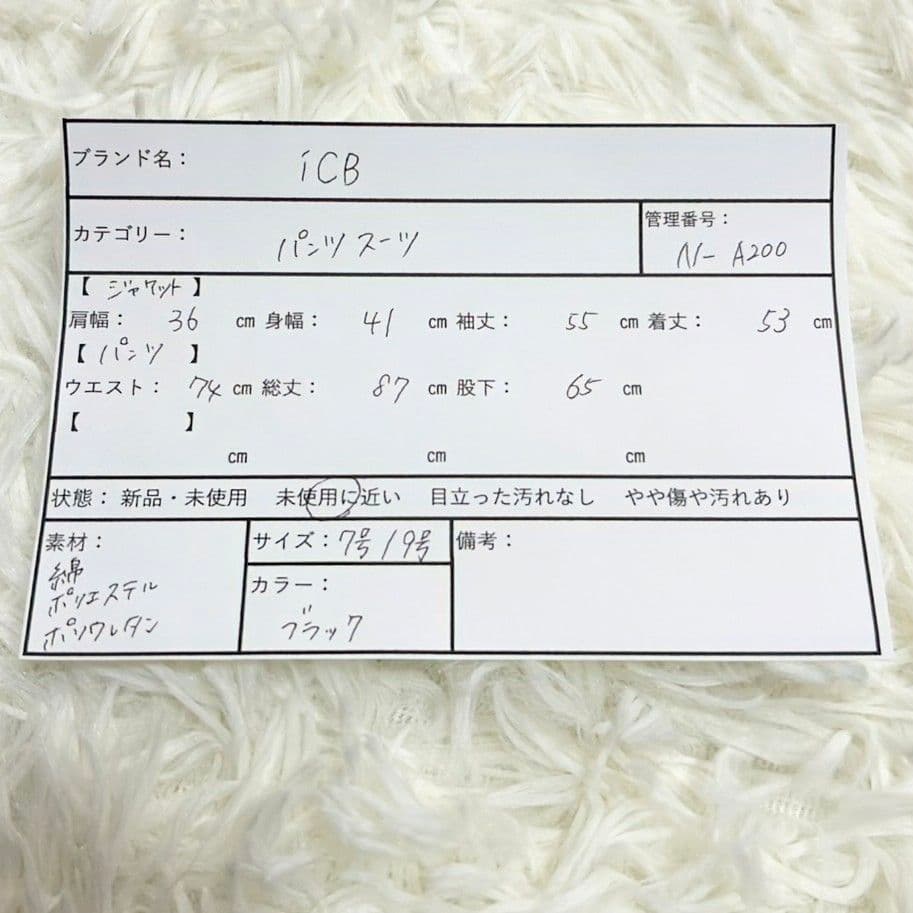 ブランド名： iCB
カテゴリー： パンツスーツ
管理番号：
N- A200
【 ジャケット 】
肩幅： 36 cm 身幅： 41 cm 袖丈： 55 cm 着丈： 53 cm
【 パンツ 】
ウエスト： 74 cm 総丈： 87 cm 股下： 65 cm
【 】
cm cm cm
状態： 新品・未使用 未使用に近い 目立った汚れなし やや傷や汚れあり
素材：
綿
ポリエステル
ポリウレタン
サイズ：7号/9号
カラー：
ブラック
備考：